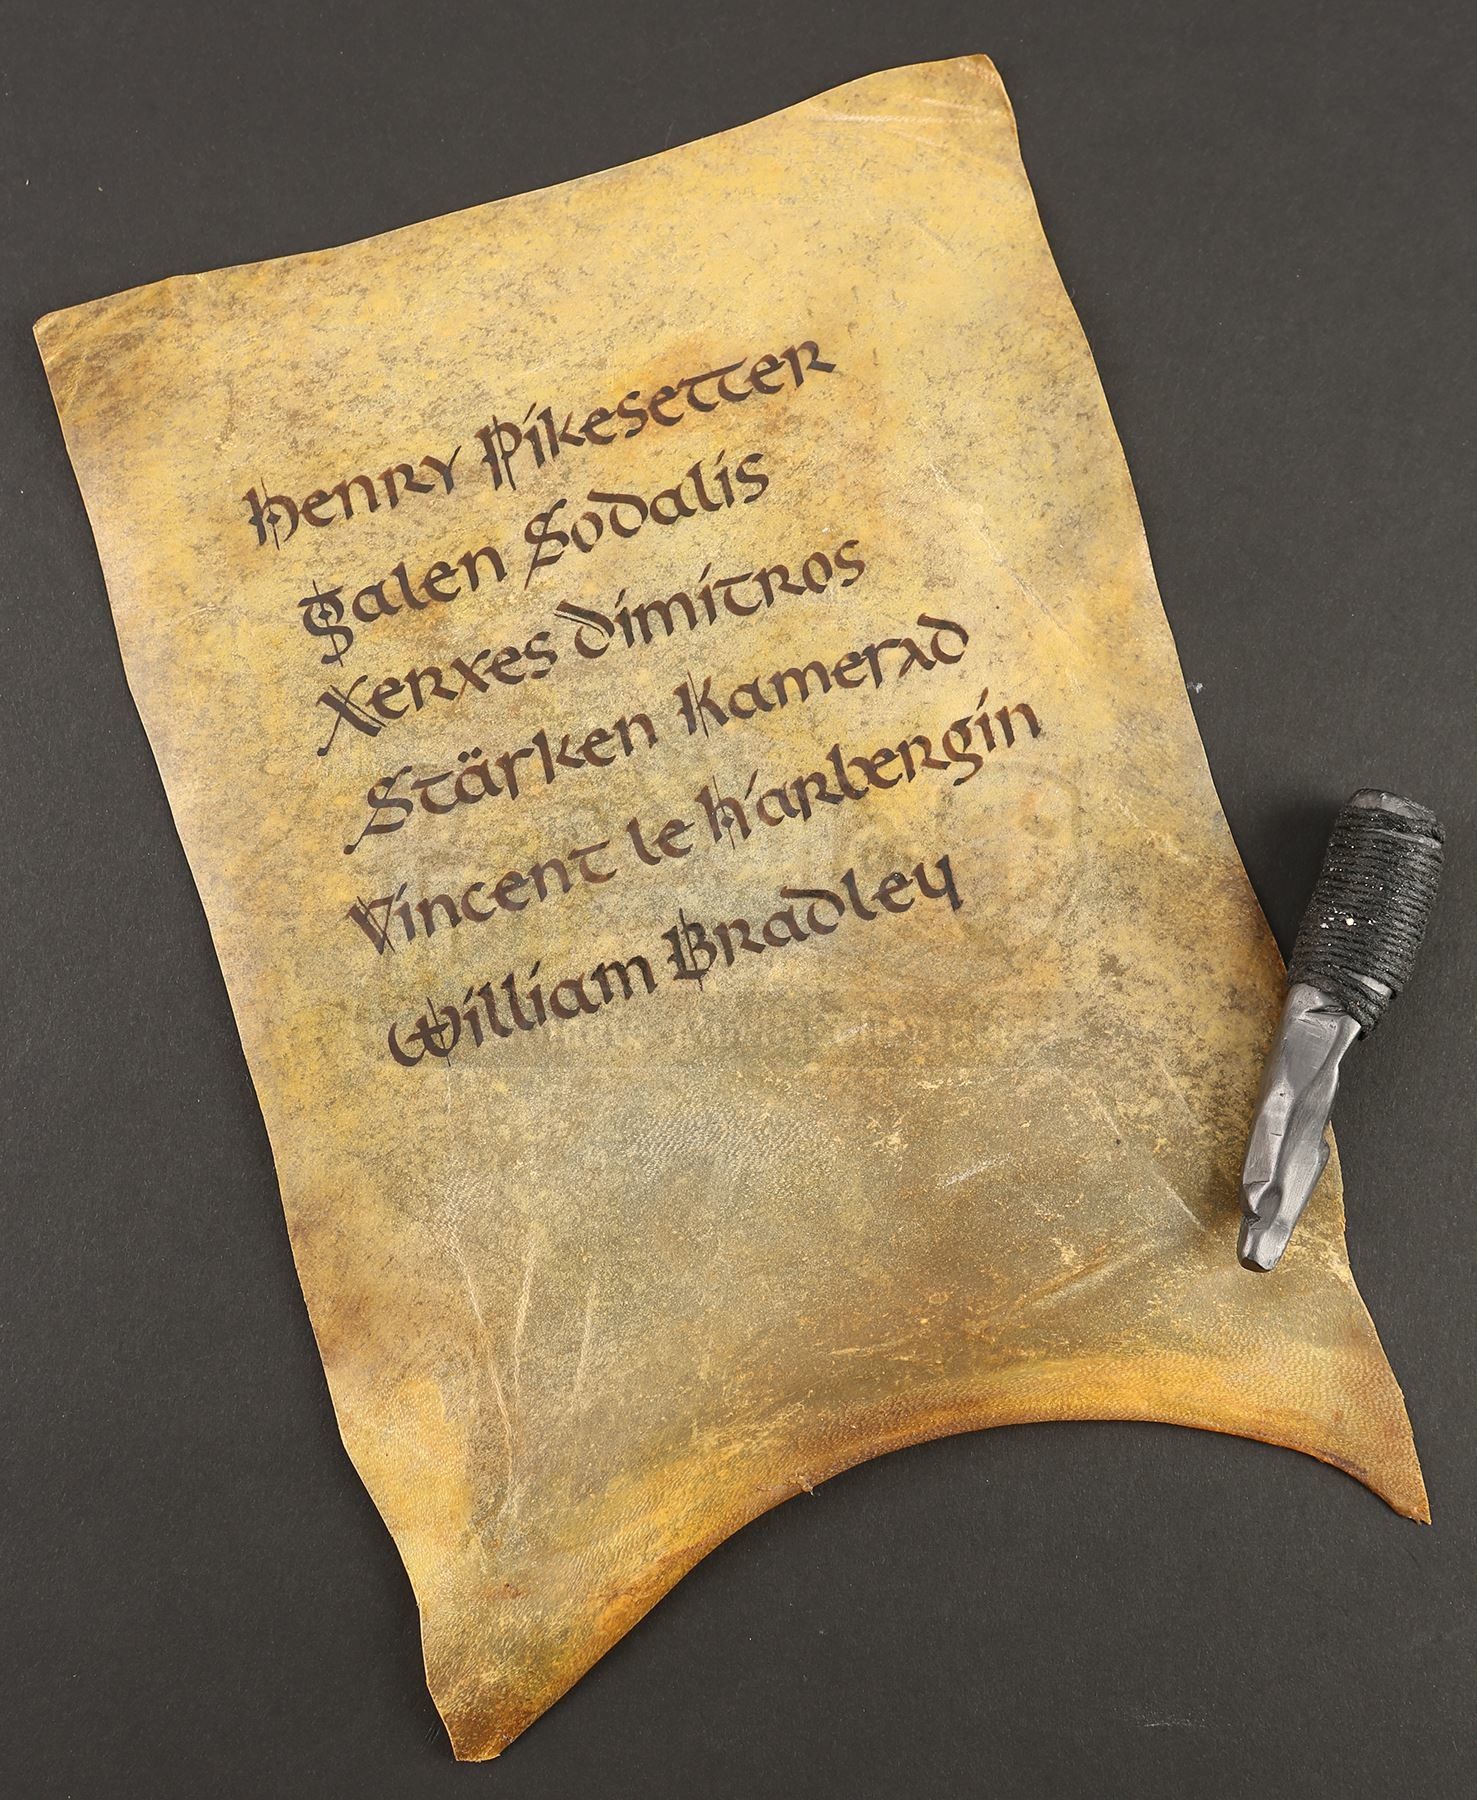 Henry Pikesetter
Galen Sodalis
Xerxes Dimitros
Stärken Kamerad
Vincent le Harbergin
William Bradley